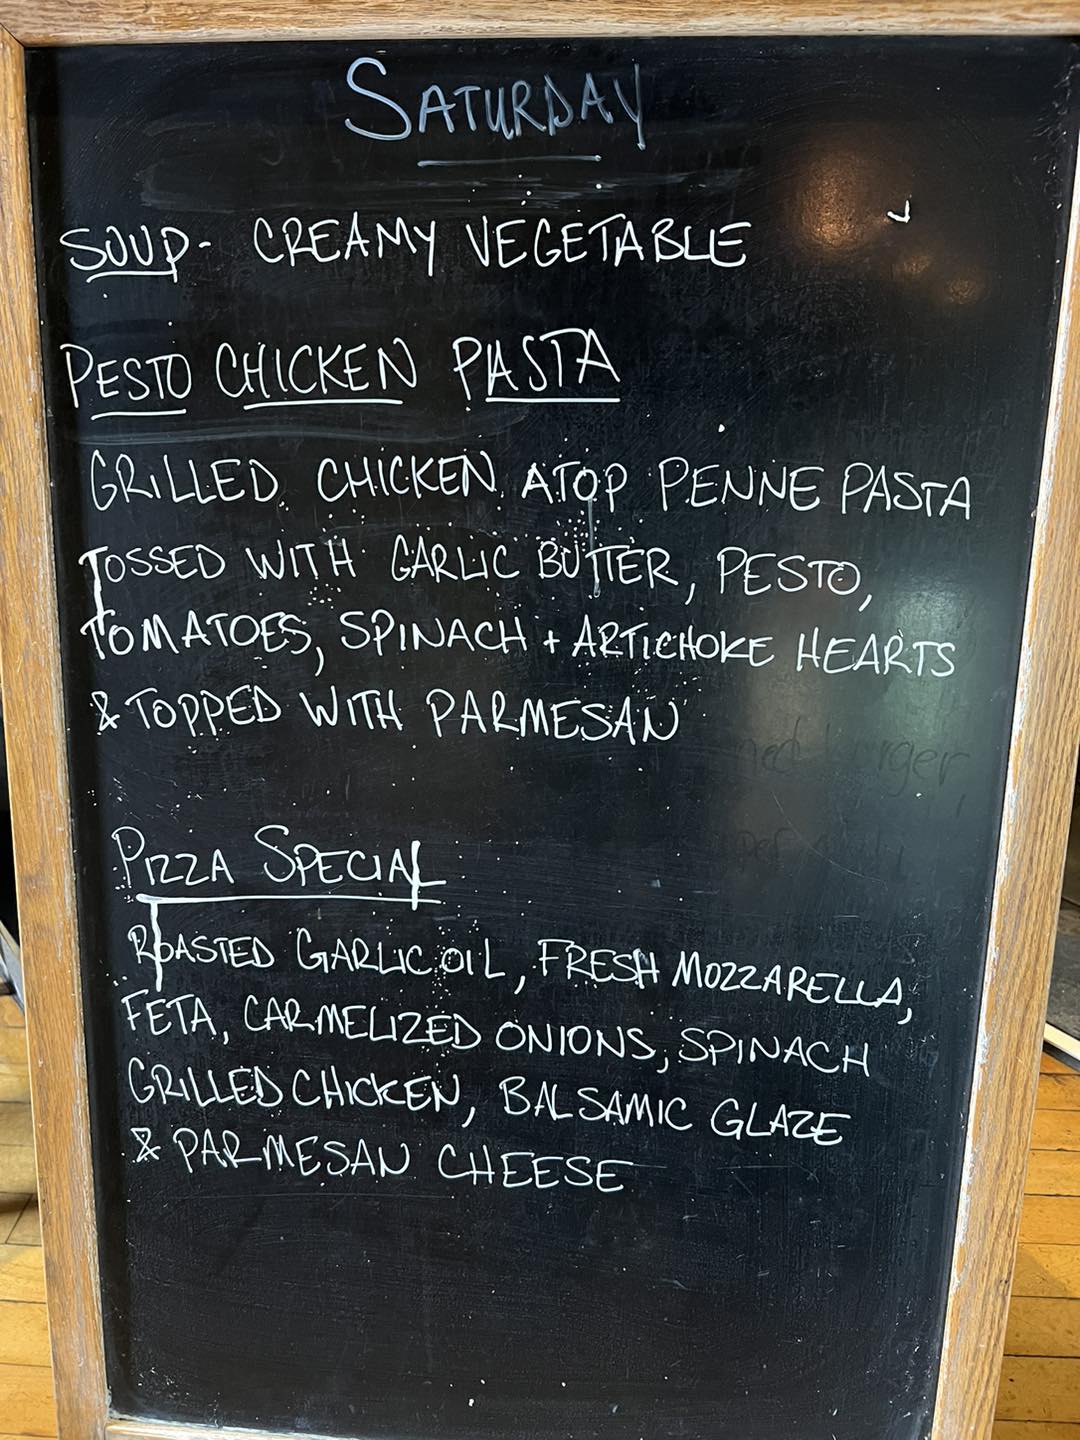 SATURDAY
SOUP- CREAMY VEGETABLE
PESTO CHICKEN PASTA
GRILLED CHICKEN ATOP PENNE PASTA
TOSSED WITH GARLIC BUTTER, PESTO,
TOMATOES, SPINACH + ARTICHOKE HEARTS
& TOPPED WITH PARMESAN
PIZZA SPECIAL
ROASTED GARLIC OIL, FRESH MOZZARELLA,
FETA, CARMELIZED ONIONS, SPINACH
GRILLED CHICKEN, BALSAMIC GLAZE
& PARMESAN CHEESE